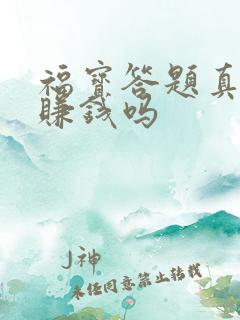 福寶答題真
賺錢吗
J神
未任同意禁止转载